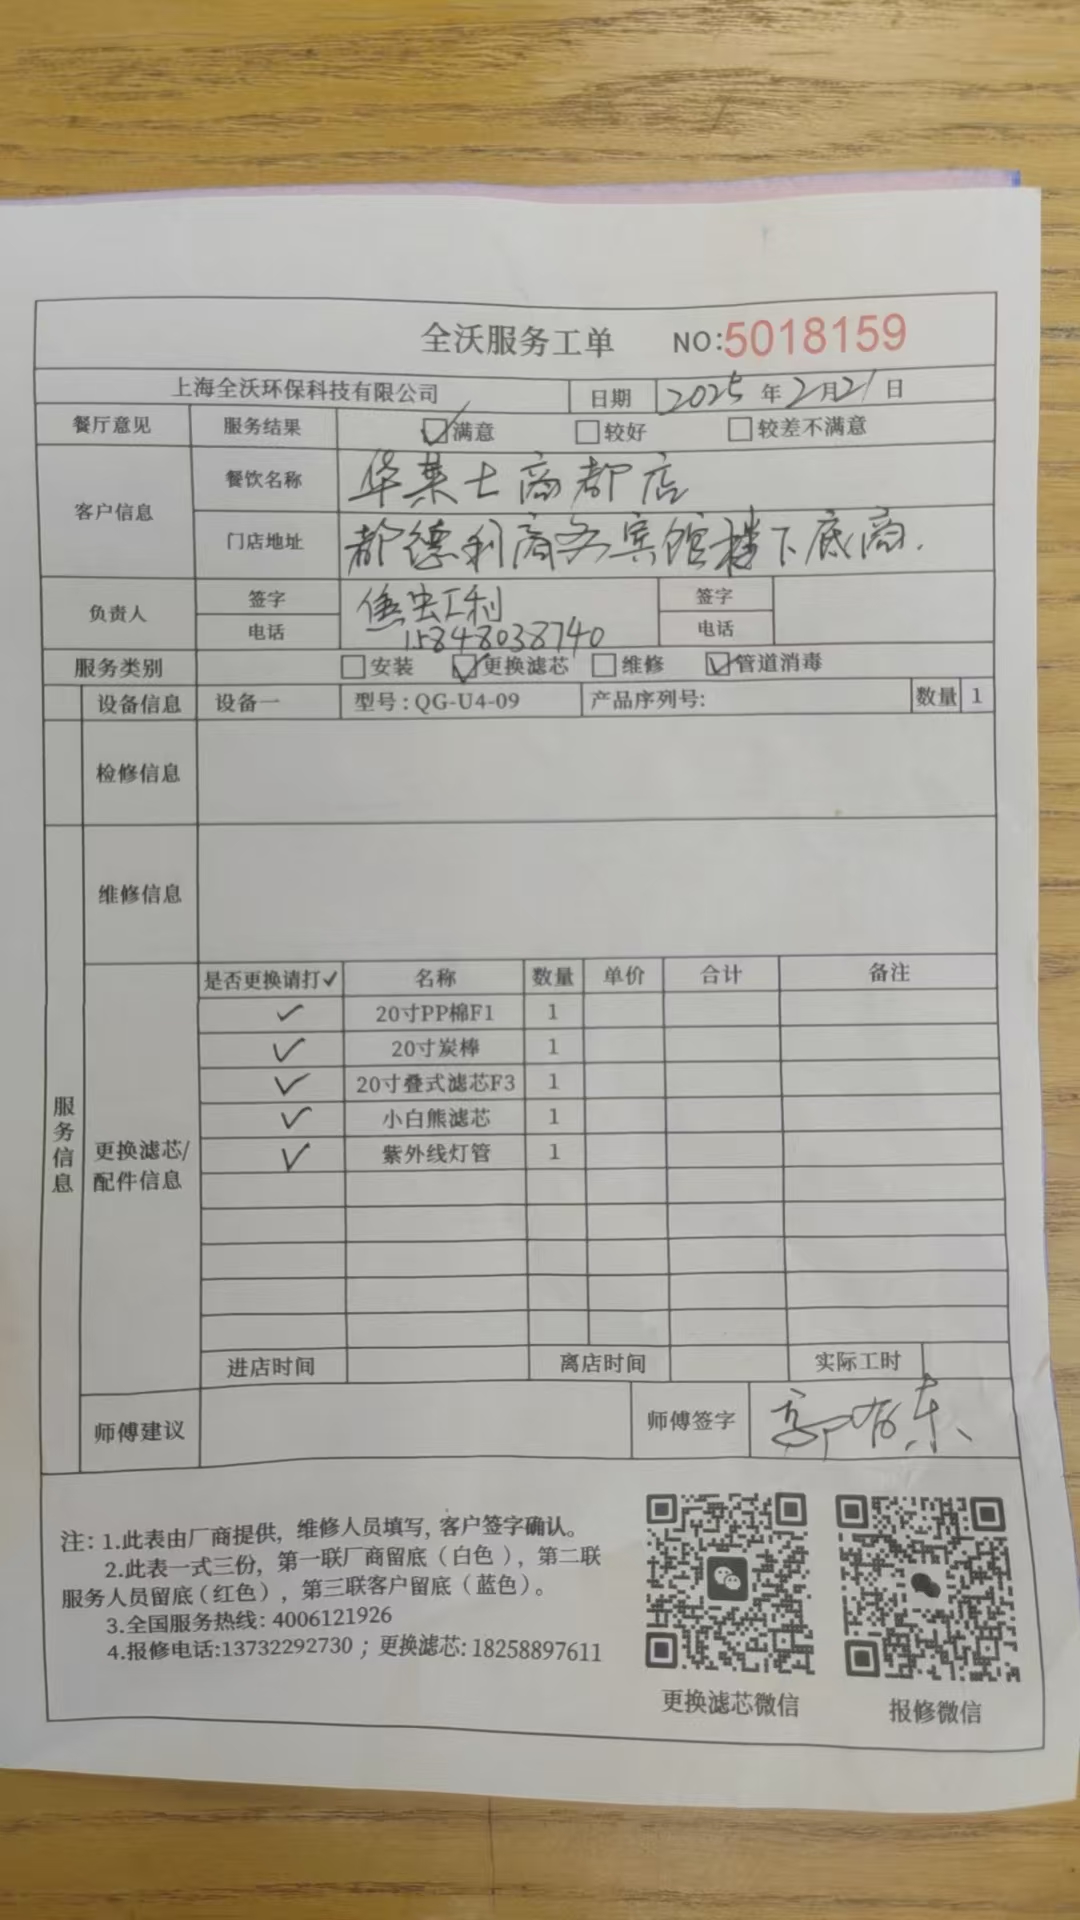 全沃服务工单 NO:5018159
上海全沃环保科技有限公司 日期 2025年2月21日
餐厅意见 服务结果 满意 较好 较差不满意
客户信息 餐饮名称 华莱士商都店
门店地址 都德利商务宾馆楼下底商.
负责人 签字 签字
电话 15848038740 电话
服务类别 安装 更换滤芯 维修 管道消毒
设备信息 设备一 型号:QG-U4-09 产品序列号: 数量 1
检修信息
维修信息
服务信息
更换滤芯/
配件信息
是否更换请打✓ 名称 数量 单价 合计 备注
✓ 20寸PP棉F1 1
✓ 20寸炭棒 1
✓ 20寸叠式滤芯F3 1
✓ 小白熊滤芯 1
✓ 紫外线灯管 1
进店时间 离店时间 实际工时
师傅建议 师傅签字
注:1.此表由厂商提供,维修人员填写,客户签字确认。
2.此表一式三份,第一联厂商留底(白色),第二联
服务人员留底(红色),第三联客户留底(蓝色)。
3.全国服务热线:4006121926
4.报修电话:13732292730;更换滤芯:18258897611
更换滤芯微信 报修微信